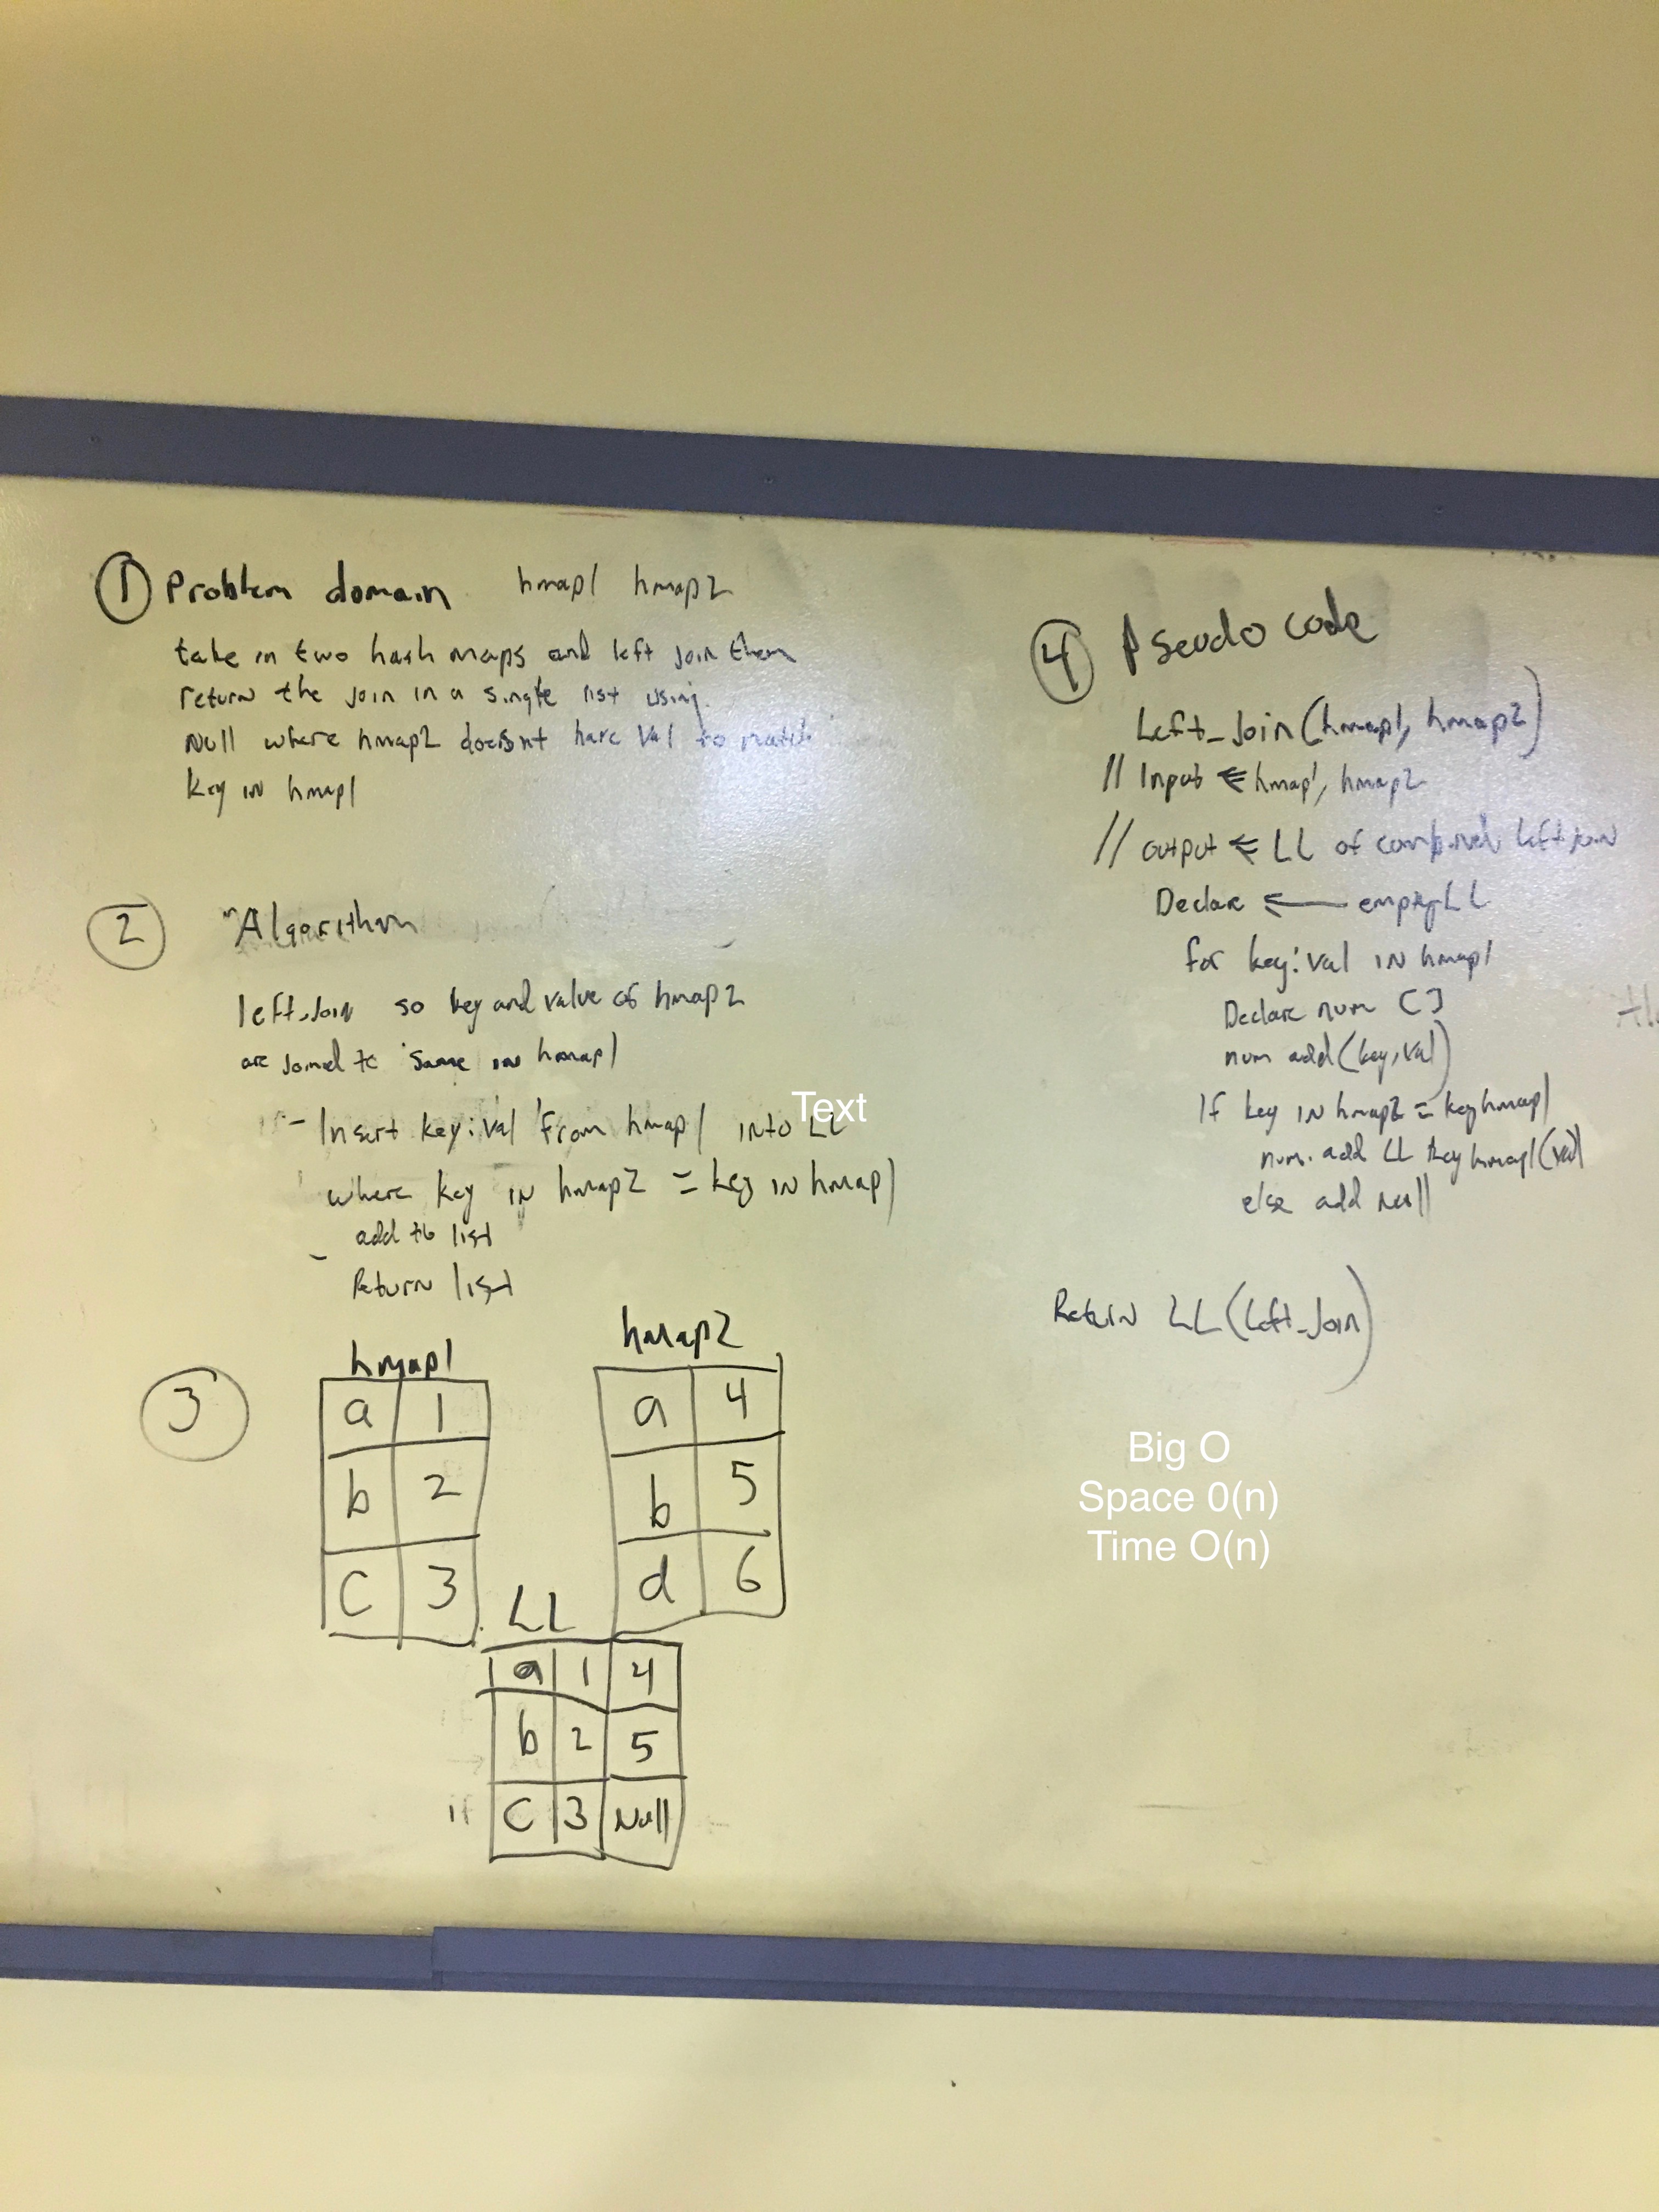 ① Problem domain hmap1 hmap2
take in two hash maps and left join them
return the join in a single list using
Null where hmap2 doesnt have val to match
key in hmap1
② Algorithm
left join so key and value of hmap2
are joined to same in hmap1
- Insert key:val from hmap1 into LL
where key in hmap2 = key in hmap1
add to list
- Return list
Text
③
hmap1
a 1
b 2
C 3
hmap2
a 4
b 5
d 6
LL
a 1 4
b 2 5
C 3 Null
④ Pseudo code
Left_Join(hmap1, hmap2)
// Input ⇐ hmap1, hmap2
// output ⇐ LL of combined left join
Declare ⇐ empty LL
for key:val IN hmap1
Declare num []
num add(key,val)
If key IN hmap2 = key hmap1
num.add LL key hmap1(val)
else add Null
Return LL(Left_Join)
Big O
Space 0(n)
Time O(n)